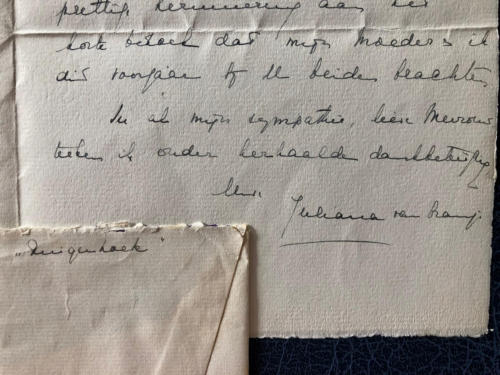 prettige herinnering aan het
korte bezoek dat mijn Moeder & ik
dit voorjaar bij U beiden brachten
In al mijn sympathie, lieve Mevrouw
teken ik onder herhaalde dankbetuiging
Uw
Juliana van Oranje
„Zuigerhoek"